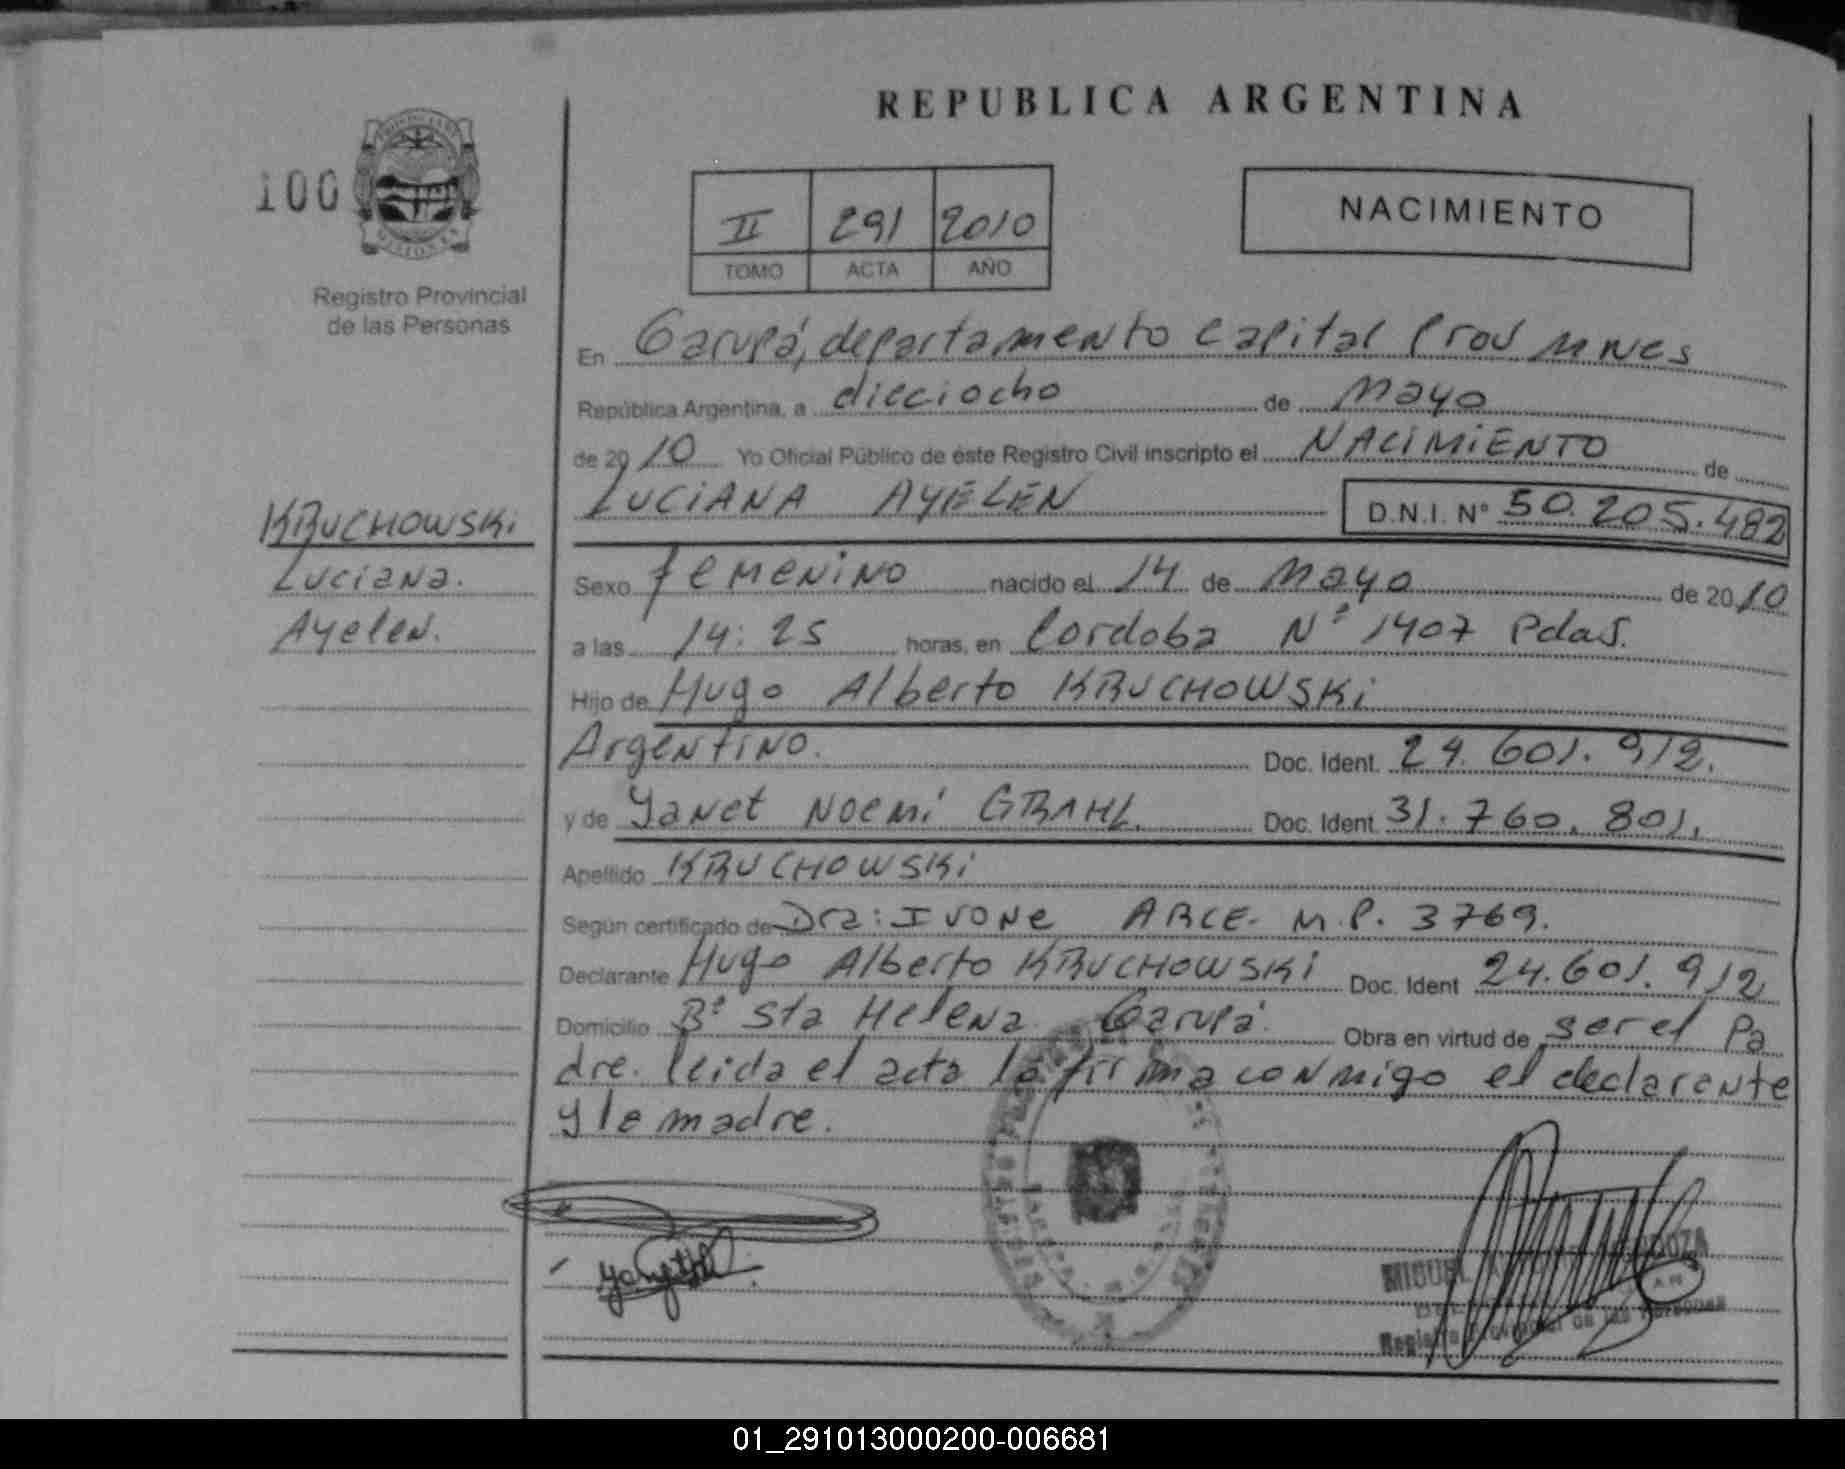 REPUBLICA ARGENTINA
100
PROVINCIA DE
MISIONES
Registro Provincial
de las Personas
II 291 2010
TOMO ACTA AÑO
NACIMIENTO
En Garupá, departamento Capital Prov Mnes
República Argentina, a dieciocho de Mayo
de 2010 Yo Oficial Público de este Registro Civil inscripto el NACIMIENTO de
LUCIANA AYELEN D.N.I. Nº 50.205.482
KRUCHOWSKi
Luciana.
Ayelen.
Sexo femenino nacido el 14 de Mayo de 2010
a las 14:25 horas, en Cordoba Nº 1407 Pdas.
Hijo de Hugo Alberto KRUCHOWSKi
Argentino. Doc. Ident. 24.601.912.
y de Yanet Noemi GRAHL Doc. Ident 31.760.801.
Apellido KRUCHOWSKi
Según certificado de Dra: Ivone ARCE. M.P. 3769.
Declarante Hugo Alberto KRUCHOWSKi Doc. Ident 24.601.912
Domicilio Bº Sta Helena Garupá. Obra en virtud de ser el Pa
dre. leida el acta la firma conmigo el declarante
y la madre.
MIGUEL
Registro Provincial de las Personas
01_291013000200-006681